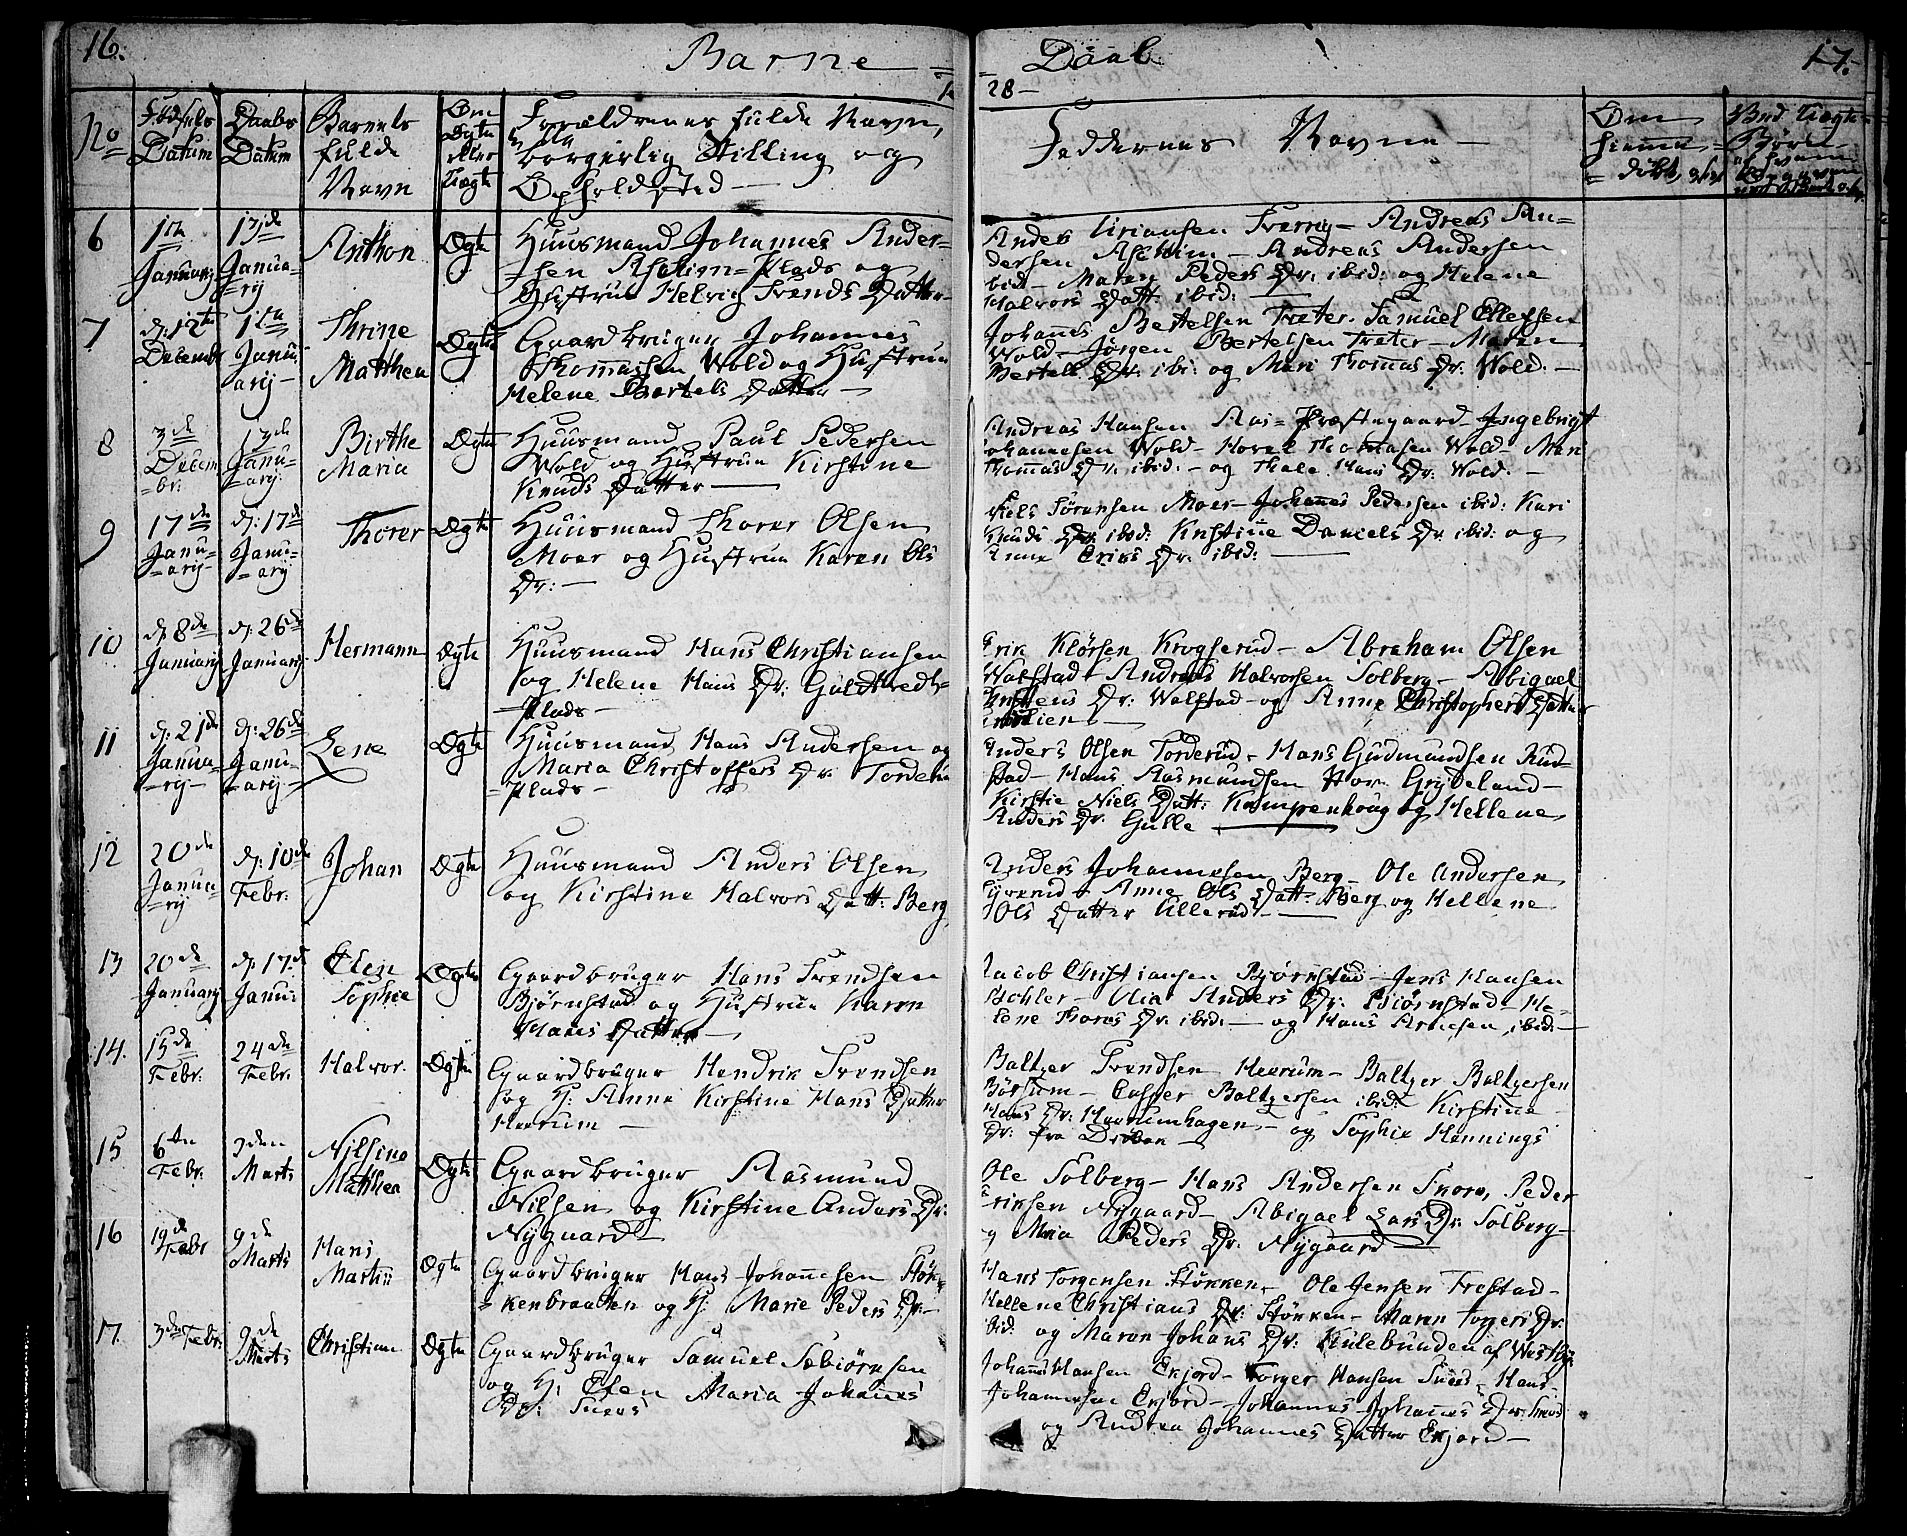 16.
Barne = Daab
17.
1828
No
Fødsels Datum
Daabs Datum
Barnets fulde Navn
Om Ægte eller Uægte
Forældrenes fulde Navn, borgerlig Stilling og Opholdsted —
Faddernes Navne —
Om hiemme =døbt
Ved Uægte Børn
6
1te Januarij
13de Janua=rij
Anthon
Ægte
Huusmand Johannes Ander=
=sen Askim=Plads og
Hustrue Helvig Svends Datter
Anders Svarrij — Andreas An=
dersen Askim — Andreas Andersen
ibid — Maren Peders Dr. ibid: og Helene
Halvors Datt. ibid: —
7
d: 12te Decembr
Janu arij —
Thrine Matthea
Ægte
Gaardbruger Johannes
Thomassen Wold og Hustrue
Helene Bertels Datter —
Johannes Bertelsen Træter. Samuel Ellefsen
Wold — Jørgen Bertelsen Træter — Maren
Bertels Dr. ibi: og Mari Thomas Dr. Wold. —
8
3de Decem=br:
13de Janu=arij
Birthe Maria
Ægte
Huusmand Paul Pedersen
Wold og Hustrue Kirstine
Knuds Datter —
Andreas Hansen Aas=Præstegaard — Ingebrigt
Johannesen Wold — Thomasen Wold — Mari
Thomas Dr. ibid. — og Thale Hans Dr. Wold. —
9
17de Janu=arij
d: 17de Janu=arij
Thorer
Ægte
Huusmand Thorer Olsen
Moer og Hustrue Karen Ols
Dr: —
Niels Sørensen Moer — Johannes Pedersen ibid: Kari
Knuds Dr. ibid: Kirstine Daniels Dr. ibid: og
Anne Eriks Dr. ibid: —
10
d. 8de Januarij
d: 26de Januarij
Hermann
Ægte
Huusmand Hans Christiansen
og Helene Hans Dr: Guldbred=
=Plads —
Erik Klørsen Krogserud — Abraham Olsen
Wolstad — Andreas Halvorsen Solberg — Abigael
Dr: Wolstad — og Anne Christophers Datter
11
d: 21de Janua=rij
d: 26de Janu=arij
Lene
Ægte
Huusmand Hans Andersen og
Maria Christoffers Dr. Torderu
=Plads —
Anders Olsen Torderud — Hans Gudmundsen Rud=
stad — Hans Rasmundsen Grydeland —
Kirstie Niels Datt: Kampenhoug og Hellene
Anders Dr. Gulle
12
20de Janua=rij
d: 10de Febr:
Johan
Ægte
Huusmand Anders Olsen
og Kirstine Halvors Datt: Berg
Anders Johannesen Berg — Ole Andersen
Anne Ols Datt. Berg og Hellene
Ols Datter Ullerud —
13
20de Januarij
d. 17de Janu:
Elen Sophie
Ægte
Gaardbruger Hans Svendsen
Bjørnstad og Hustrue Karen
Hans Datter —
Jacob Christiansen Bjørnstad — Jens Hansen
Bohler — Anders Dr: Biørnstad — He=
lene Thores Dr. ibid: — og Hans Arnesen ibid: —
14.
15de Febr:
24de Febr.
Halvor.
Ægte
Gaardbruger Hendrik Svendsen
og H: Anne Kirstine Hans Datter
Haerum —
Baltzer Svendsen Haerum — Baltzer Baltzersen
Børsum — Casper Baltzersen ibid: Kirstine
Hans Dr: Haerumhagen — og Sophie Hennings
Dr: fra Drøbak —
15
6te Febr:
9den Marts
Nilsine Matthea
Ægte
Gaardbruger Rasmund
Nilsen og Kirstine Anders Dr:
Nygaard —
Ole Solberg — Hans Andersen Snora, Peder
Nygaard — Abigael Lars Dr. Solberg —
og Maria Peders Dr. Nygaard —
16
19de Febr
9de Marts
Hans Martin
Ægte
Gaardbruger Hans Johannesen Støk=
=kenbraatten og H: Marie Peders Dr: —
Hans Torgersen Støkken, Ole Jensen Frestad —
Hellene Christians Dr: Støkken — Maren Torgers Dr.
ibid: og Maren Johans Dr: Kulebunden af Westby
17.
3de Febr:
9de Marts
Christian
Ægte
Gaardbruger Samuel Sebiørnsen
og H: Maria Johannes
Dr:
Johannes Hansen Ekjord — Torger Hansen — Hans
Johannesen Ekjord — Johannes Johannes
og Andrea Johannes Datter Ekjord —